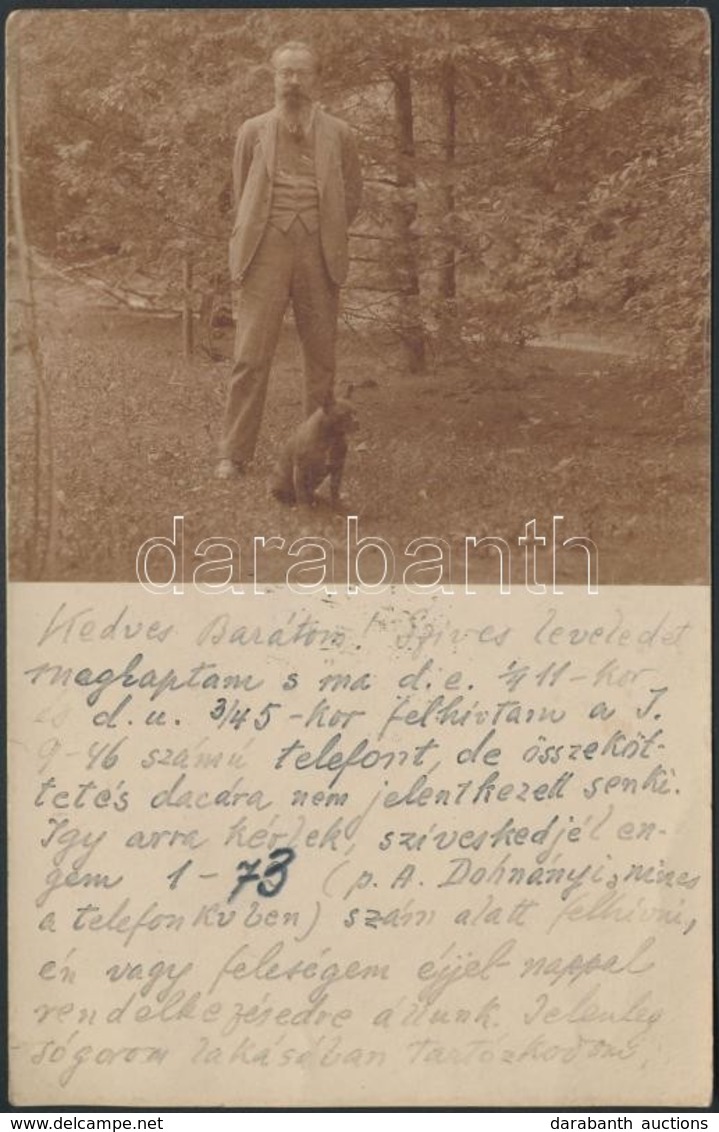 darabanth
Kedves Barátom! Szives leveledet
megkaptam s ma d. e. 1/4 11-kor
és d. u. 3/4 5-kor felhivtam a J.
9-46 számú telefont, de összeköt-
tetés dacára nem jelentkezett senki.
Igy arra kérlek, sziveskedjél en-
gem 1-73 (p. A. Dohnányi, nincs
a telefonkvben) szám alatt felhivni,
én vagy feleségem éjjel nappal
rendelkezésedre állunk. Jelenleg
sógorom lakásában tartózkodom.
© darabanth auctions
darabanth auctions